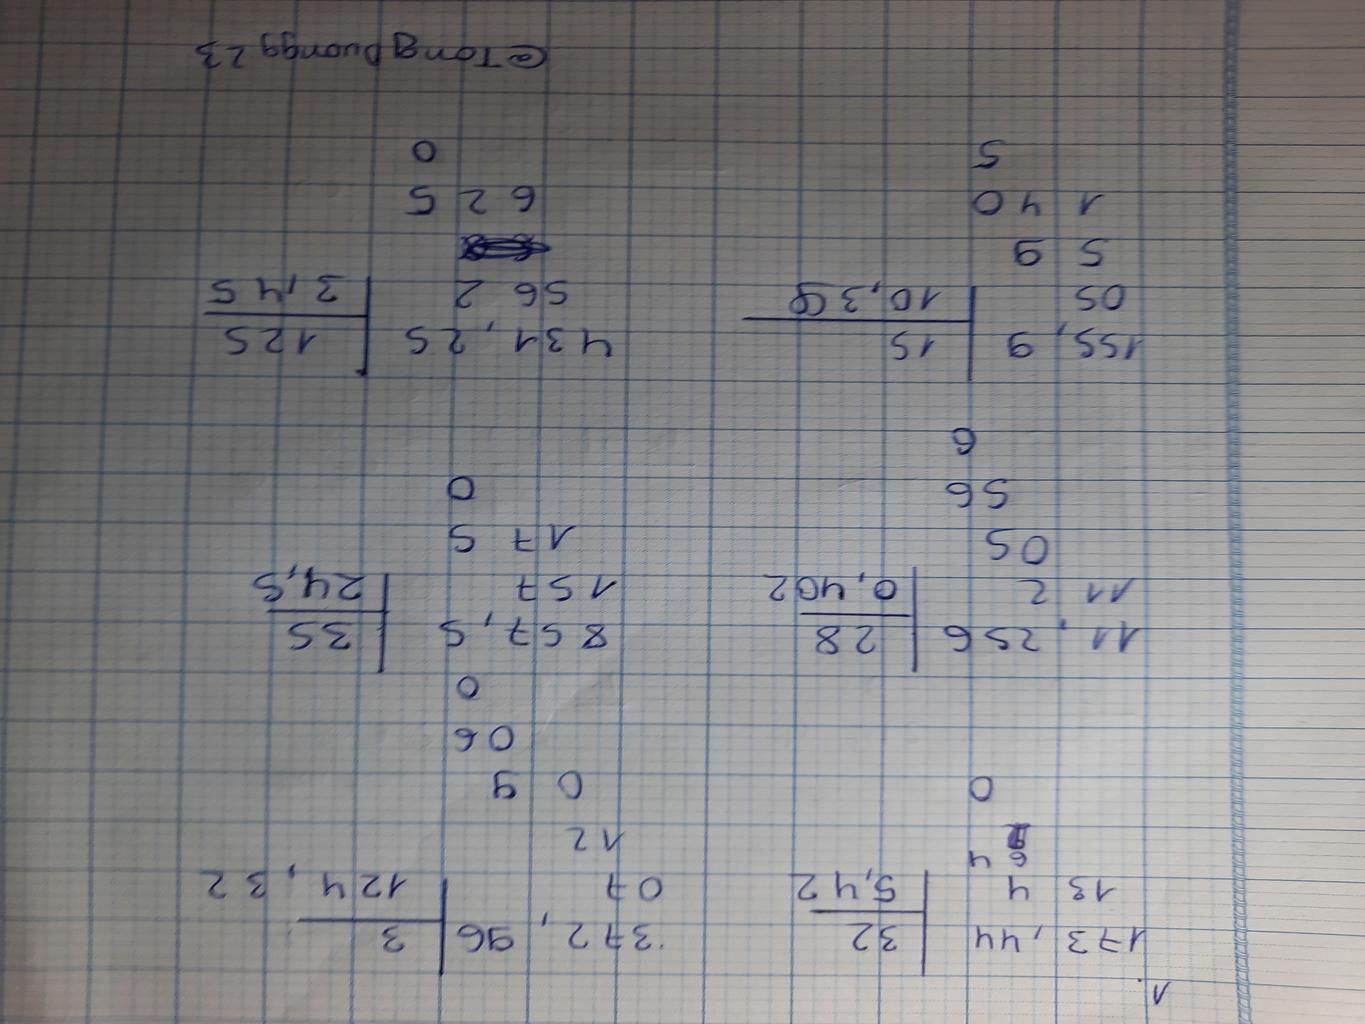 1.
173,44 32
13 4 5,42
64
0
372,96 3
07 124,32
12
0 9
06
0
11,256 28
11 2 0,402
05
56
6
857,5 35
157 24,5
17 5
0
155,9 15
05 10,39
5 9
1 40
5
431,25 125
56 2 3,45
6 2 5
0
@TongDuongg23